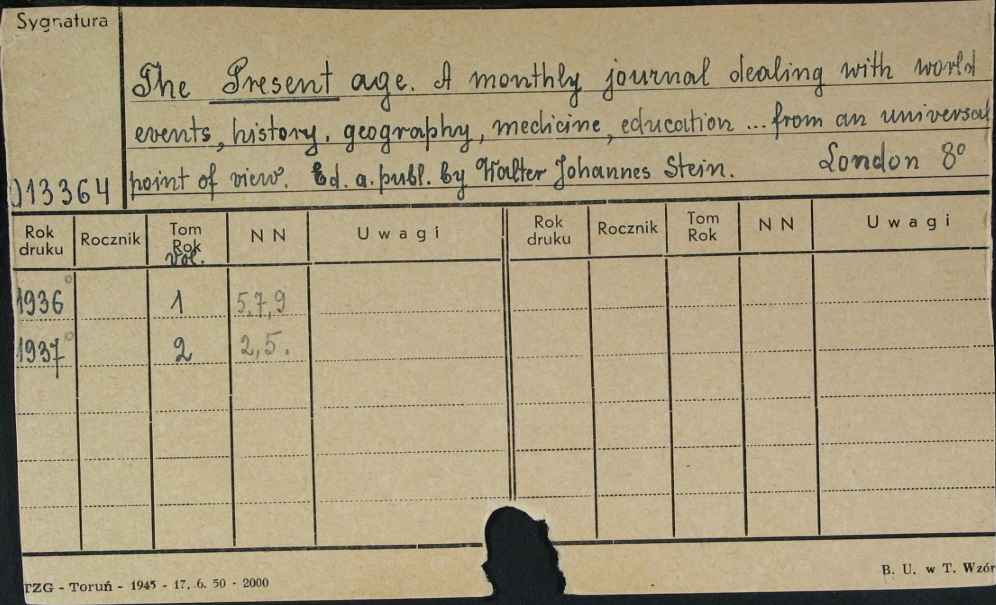 Sygnatura
The Present age. A monthly journal dealing with world
events, history, geography, medicine, education ... from an universal
point of view. Ed. a. publ. by Walter Johannes Stein. London 8°
013364
Rok druku Rocznik Tom Rok Vol. NN Uwagi Rok druku Rocznik Tom Rok NN Uwagi
1936° 1 5,7,9
1937° 2 2,5.
TZG - Toruń - 1945 - 17. 6. 50 - 2000
B. U. w T. Wzór